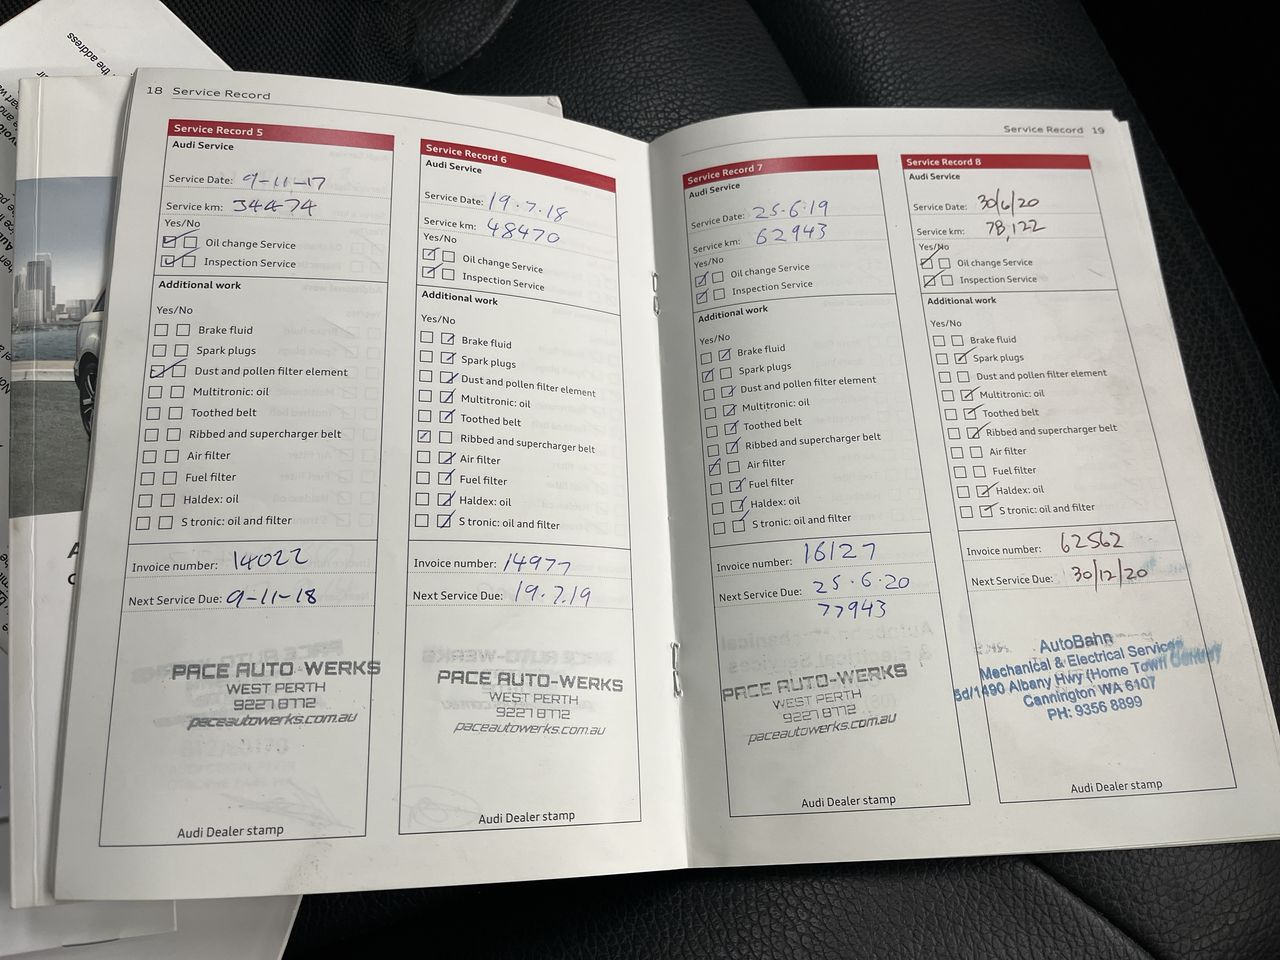 the address
18 Service Record
Service Record 5
Audi Service
Service Date: 9-11-17
Service km: 34474
Yes/No
Oil change Service
Inspection Service
Additional work
Yes/No
Brake fluid
Spark plugs
Dust and pollen filter element
Multitronic: oil
Toothed belt
Ribbed and supercharger belt
Air filter
Fuel filter
Haldex: oil
S tronic: oil and filter
Invoice number: 14022
Next Service Due: 9-11-18
PACE AUTO-WERKS
WEST PERTH
9227 8772
paceautowerks.com.au
Audi Dealer stamp
Service Record 6
Audi Service
Service Date: 19.7.18
Service km: 48470
Yes/No
Oil change Service
Inspection Service
Additional work
Yes/No
Brake fluid
Spark plugs
Dust and pollen filter element
Multitronic: oil
Toothed belt
Ribbed and supercharger belt
Air filter
Fuel filter
Haldex: oil
S tronic: oil and filter
Invoice number: 14977
Next Service Due: 19.7.19
PACE AUTO-WERKS
WEST PERTH
9227 8772
paceautowerks.com.au
Audi Dealer stamp
Service Record 19
Service Record 7
Audi Service
Service Date: 25.6.19
Service km: 62943
Yes/No
Oil change Service
Inspection Service
Additional work
Yes/No
Brake fluid
Spark plugs
Dust and pollen filter element
Multitronic: oil
Toothed belt
Ribbed and supercharger belt
Air filter
Fuel filter
Haldex: oil
S tronic: oil and filter
Invoice number: 16127
Next Service Due: 25.6.20
77943
PACE AUTO-WERKS
WEST PERTH
9227 8772
paceautowerks.com.au
Audi Dealer stamp
Service Record 8
Audi Service
Service Date: 30/6/20
Service km: 78,122
Yes/No
Oil change Service
Inspection Service
Additional work
Yes/No
Brake fluid
Spark plugs
Dust and pollen filter element
Multitronic: oil
Toothed belt
Ribbed and supercharger belt
Air filter
Fuel filter
Haldex: oil
S tronic: oil and filter
Invoice number: 62562
Next Service Due: 30/12/20
AutoBahn
Mechanical & Electrical Services
5d/1490 Albany Hwy (Home Town
Cannington WA 6107
PH: 9356 8899
Audi Dealer stamp